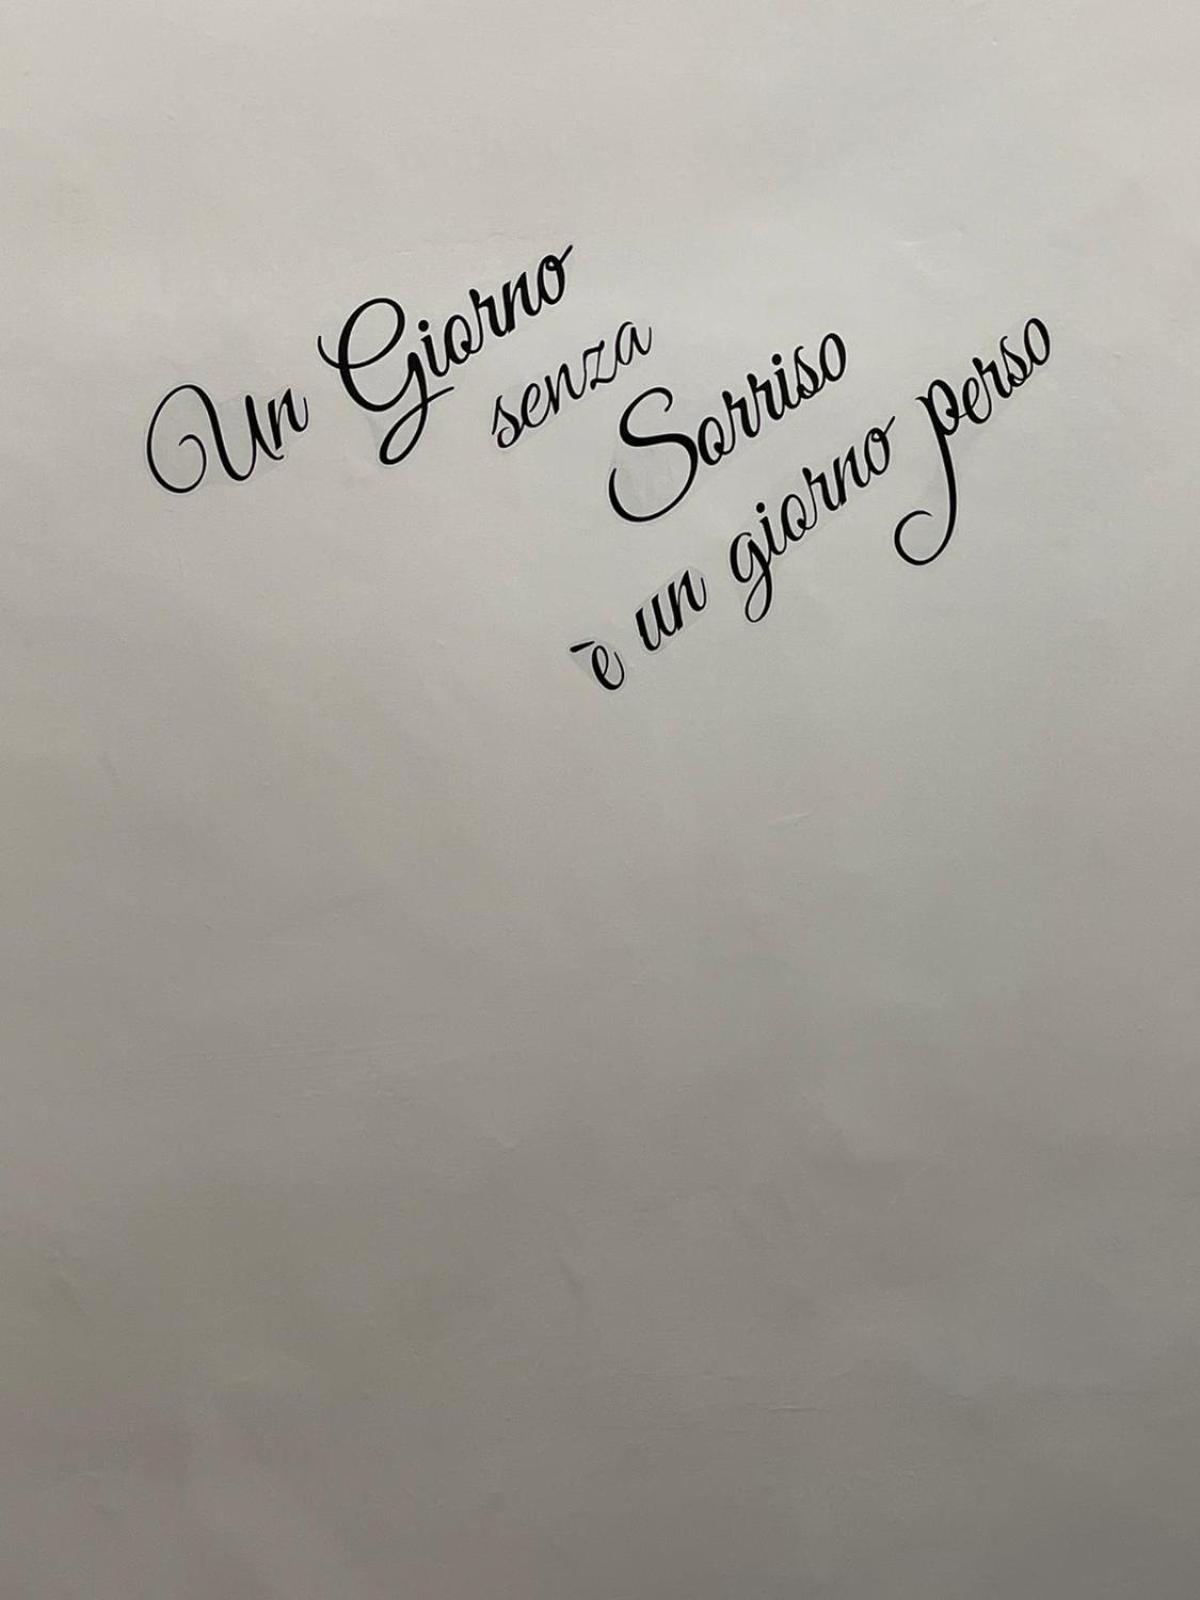 Un Giorno
senza
Sorriso
è un giorno perso